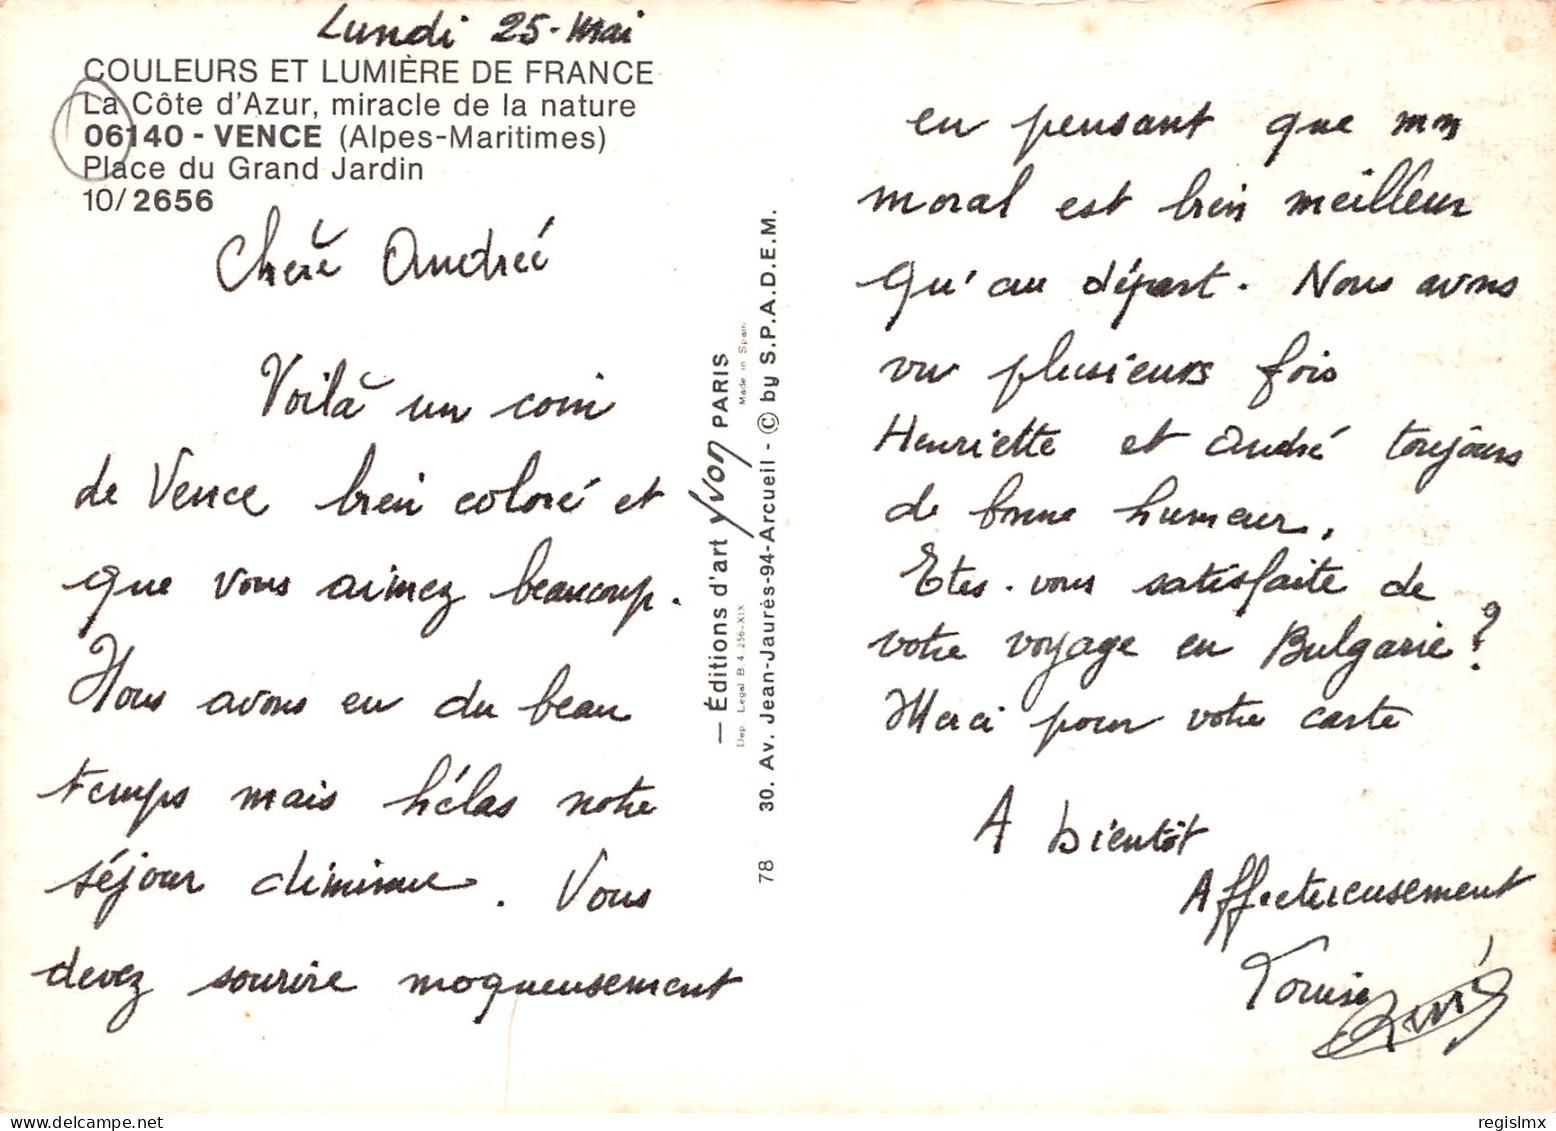 Lundi 25-Mai
COULEURS ET LUMIÈRE DE FRANCE
La Côte d'Azur, miracle de la nature
06140 - VENCE (Alpes-Maritimes)
Place du Grand Jardin
10/2656
Chère Andrée
Voilà un coin
de Vence bien coloré et
que vous aimez beaucoup.
Nous avons eu du beau
temps mais hélas notre
séjour diminue. Vous
devez sourire moqueusement
— Éditions d'art Yvon PARIS
Made in Spain.
Dep. Legal B. 4.256-XIX
78 30. Av. Jean-Jaurès-94-Arcueil - © by S.P.A.D.E.M.
en pensant que mon
moral est bien meilleur
Qu'au départ. Nous avons
vu plusieurs fois
Henriette et André toujours
de bonne humeur.
Etes-vous satisfaite de
votre voyage en Bulgarie ?
Merci pour votre carte
A bientôt
Affectueusement
Louise
regislmx